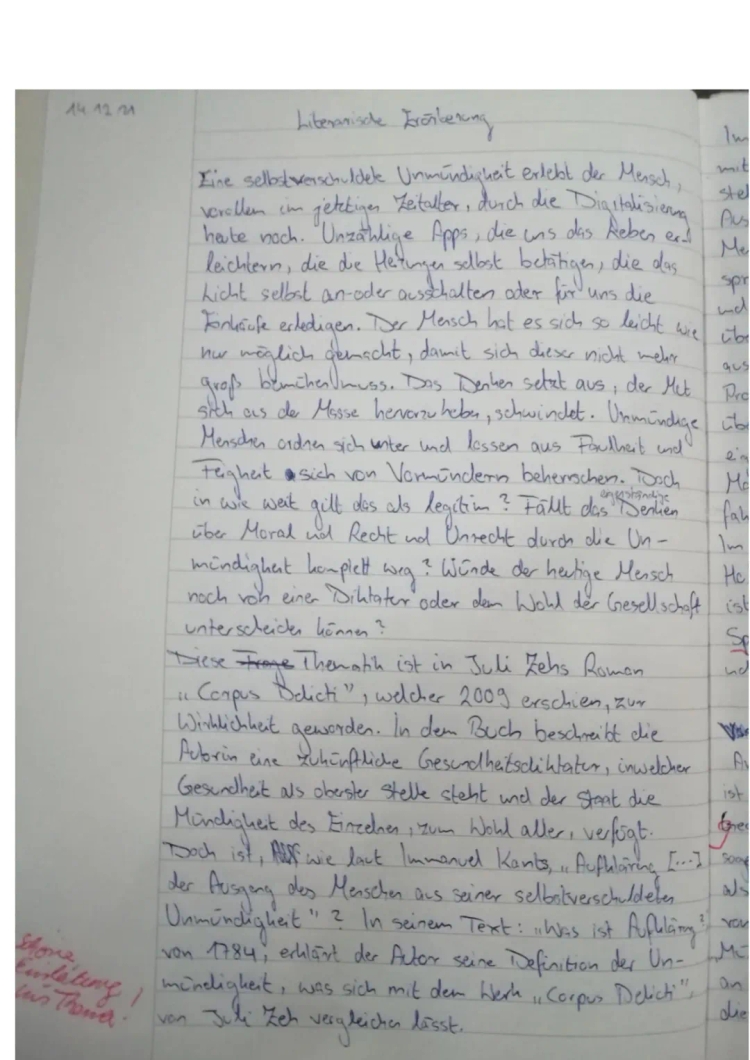 14.12.21
Literarische Erörterung
Eine selbstverschuldete Unmündigkeit erlebt der Mensch,
vorallem im jetztigen Zeitalter, durch die Digitalisierung
heute noch. Unzählige Apps, die uns das Leben er-
leichtern, die die Heizungen selbst betätigen, die das
Licht selbst an-oder ausschalten oder für uns die
Einkäufe erledigen. Der Mensch hat es sich so leicht wie
nur möglich gemacht, damit sich dieser nicht mehr
groß bemühen muss. Das Denken setzt aus, der Mut
sich aus der Masse hervorzuheben, schwindet. Unmündige
Menschen ordnen sich unter und lassen aus Faulheit und
Feigheit sich von Vormündern beherrschen. Doch
in wie weit gilt das als legitim? Fällt das eigenständige Denken
über Moral und Recht und Unrecht durch die Un-
mündigkeit komplett weg? Würde der heutige Mensch
noch von einer Diktatur oder dem Wohl der Gesellschaft
unterscheiden können?
Diese Frage Thematik ist in Juli Zehs Roman
"Corpus Delicti", welcher 2009 erschien, zur
Wirklichkeit geworden. In dem Buch beschreibt die
Autorin eine zukünftliche Gesundheitsdiktatur, inwelcher
Gesundheit als oberster Stelle steht und der Staat die
Mündigkeit des Einzelnen, zum Wohl aller, verfügt.
Doch ist, wie laut Immanuel Kants, "Aufklärung [...]
der Ausgang des Menschen aus seiner selbstverschuldeten
Unmündigkeit"? In seinem Text: "Was ist Aufklärung?"
von 1784, erklärt der Autor seine Definition der Un-
mündigkeit, was sich mit dem Werk "Corpus Delicti",
von Juli Zeh vergleichen lässt.
Schöne
Einleitung
ins Thema!
Im
mit
stel
Aus
Me
spr
und
übe
aus
Pro
übe
ein
Me
fäh
Im
Ha
ist
Sp
und
ist
sag
als
von
Mü
an
die